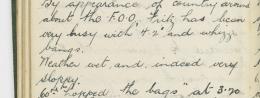 By appearance of country around
about the F.O.O. Fritz has been
very busy with 4.2" and whizz
bangs.
Weather wet and indeed very
sloppy.
60th "hopped the bags" at 3.20